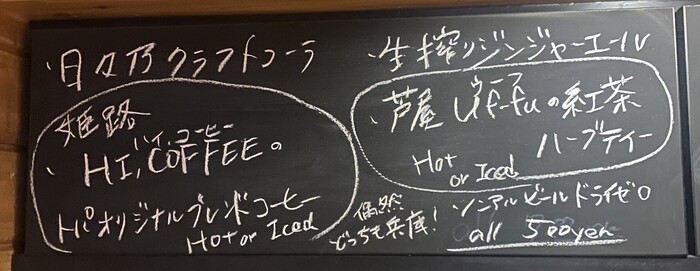 ・日々乃クラフトコーラ
・生搾りジンジャーエール
姫路
ハイ,コーヒー
・HI,COFFEEの
トパオリジナルブレンドコーヒー
Hot or Iced
ウーフ
・芦屋Uf-fuの紅茶
ハーブティー
Hot
or Iced
偶然
どっちも兵庫!
・ノンアルビールドライゼロ
all 500yen